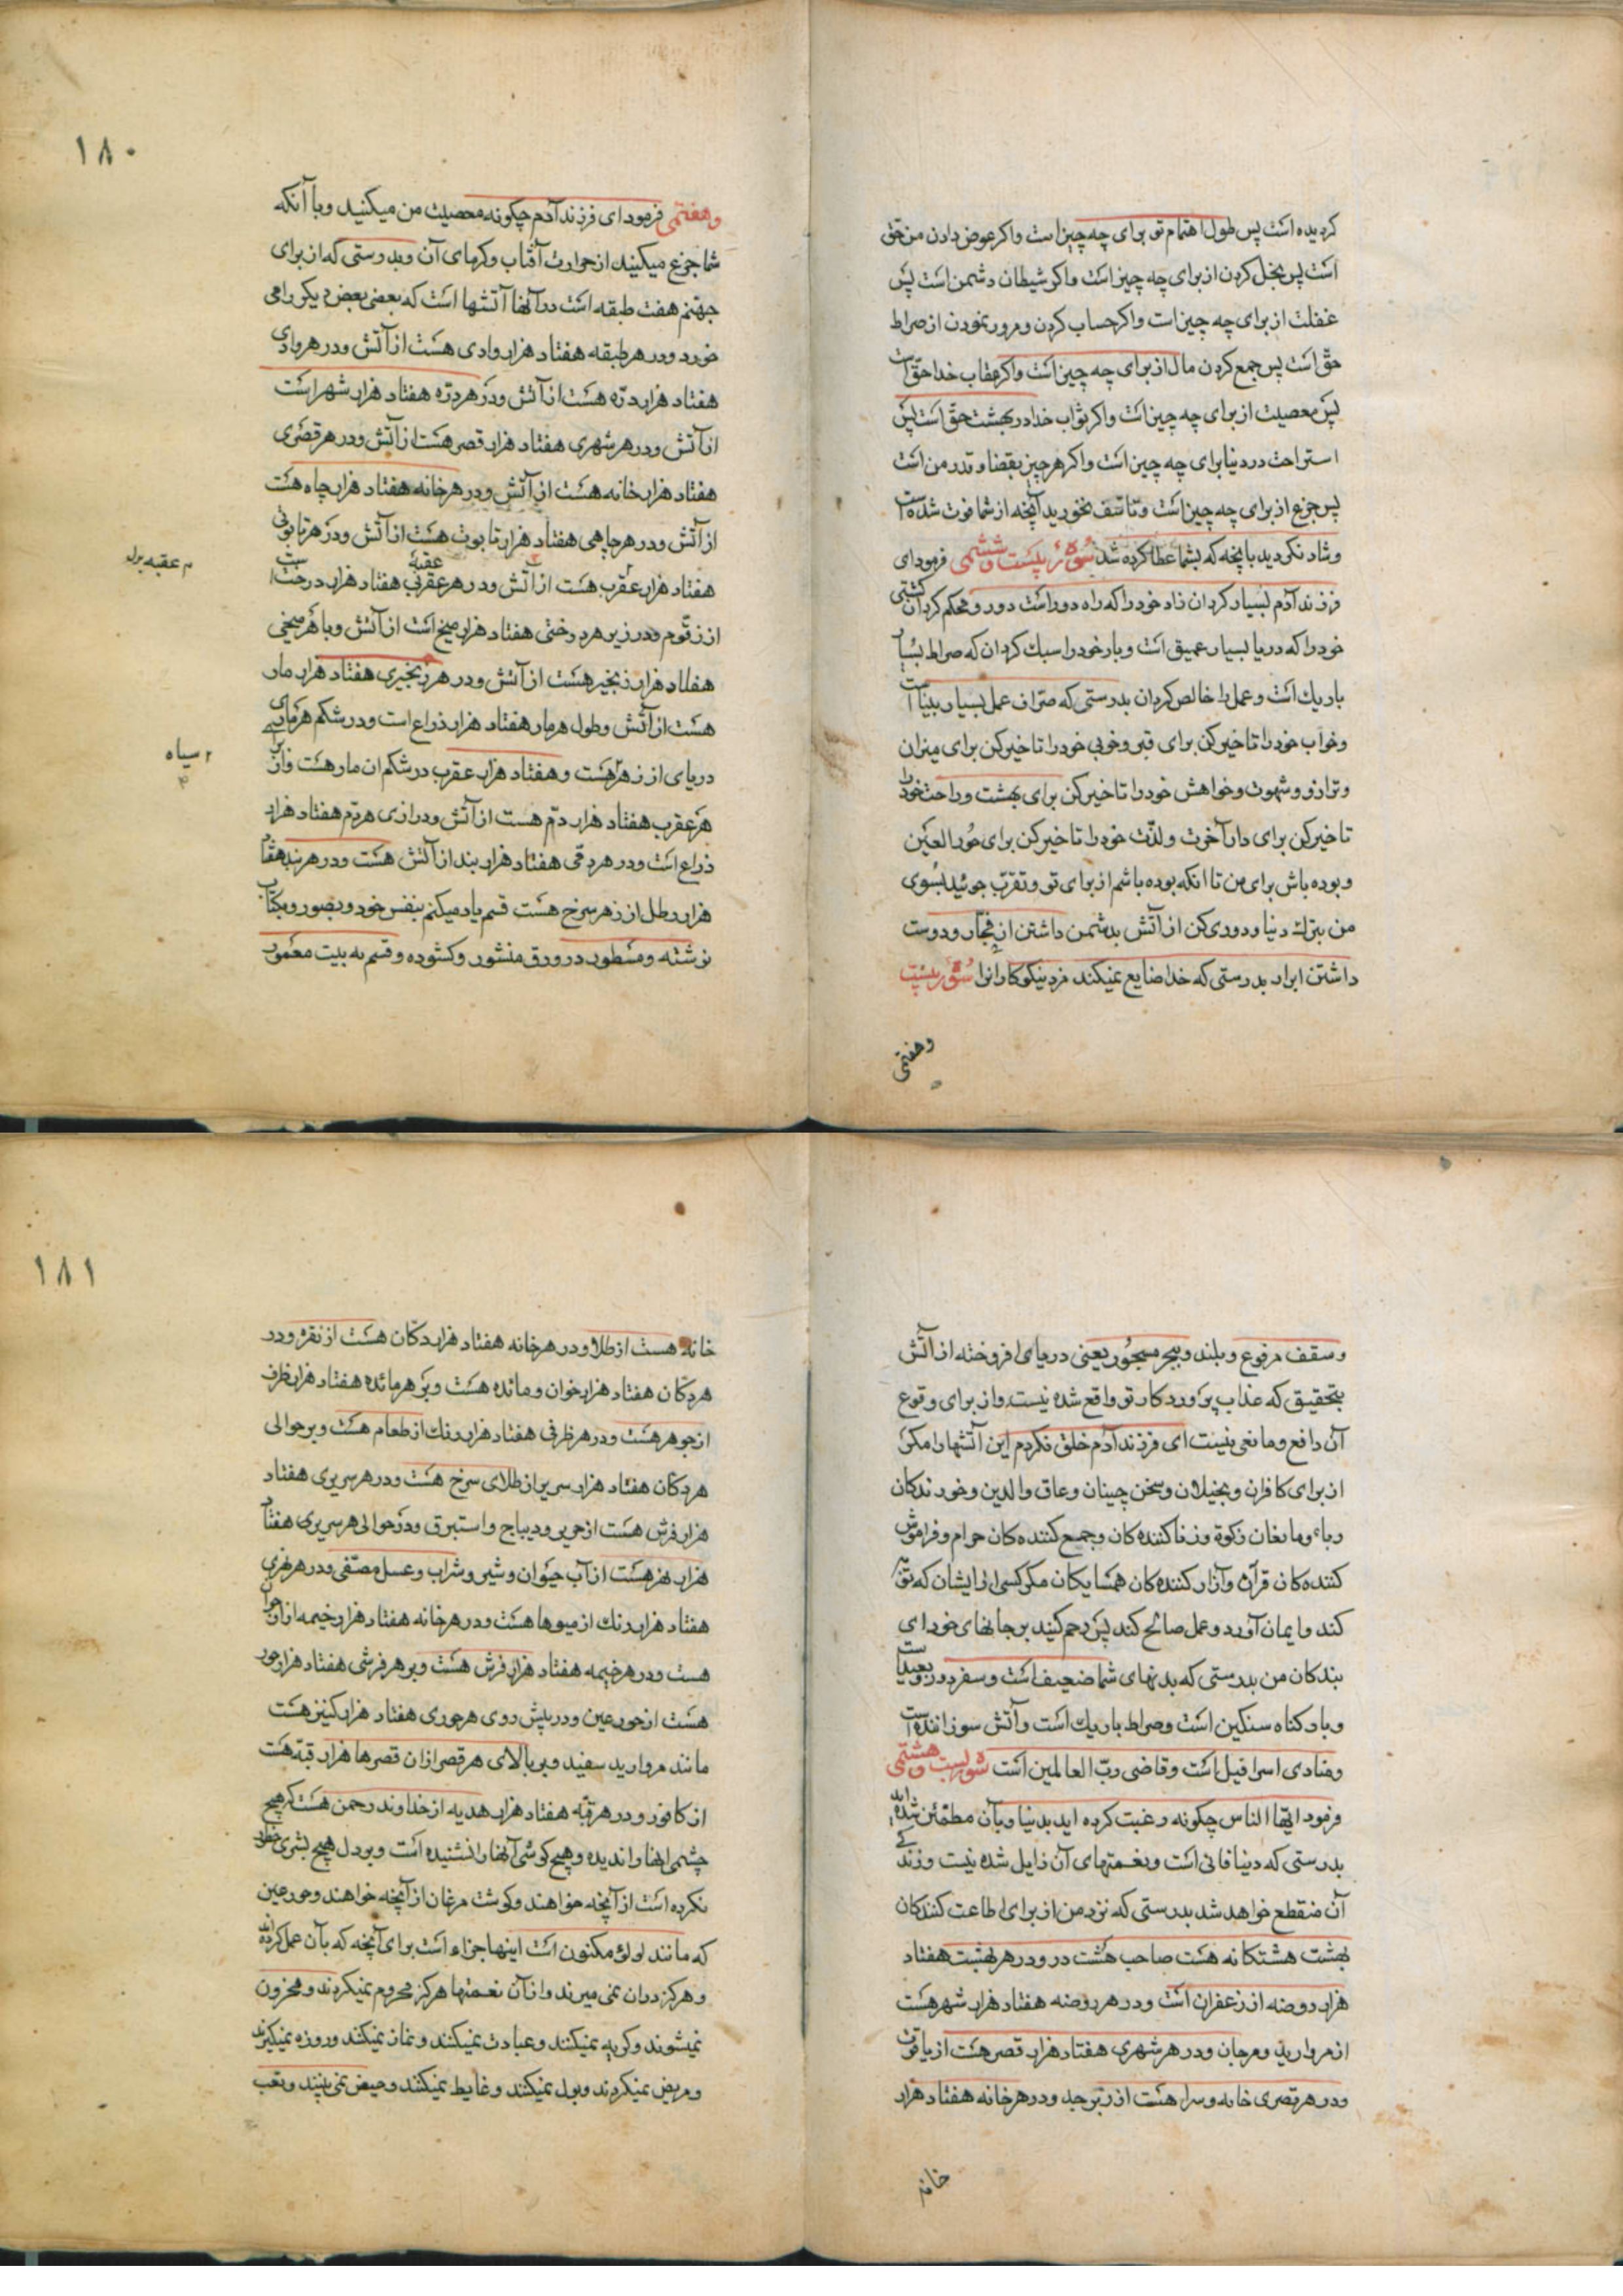 کردیده است پس طول اهتمام تو برای چه چیز است واکر عوض دادن من حق
است پس بخل کردن از برای چه چیز است واکر شیطان دشمن است پس
غفلت از برای چه چیز است واکر حساب کردن و مرور نمودن از صراط
حق است پس جمع کردن مال از برای چه چیز است واکر عقاب خدا حق است
پس معصیت از برای چه چیز است واکر ثواب خدا در بهشت حق است پس
استراحت در دنیا برای چه چیز است واکر هر چیز بقضا و قدر من است
پس جزع از برای چه چیز است و تاسّف نخورید آنچه از شما فوت شده است
و شاد نکردید بانچه که بشما عطا کرده شد سوره بیست وششمی فرمود ای
فرزند آدم بسیار کردان زاد خود را که راه دور است دور و محکم کردان کشتی
خود را که دریا بسیار عمیق است و بار خود را سبك کردان که صراط بسیار
باریك است و عمل را خالص کردان بدرستی که صرّاف عمل بسیار بینا است
وخواب خود را تاخیر کن برای قبر و خوبی خود را تاخیر کن برای میزان
و ترازو و شهوت و خواهش خود را تاخیر کن برای بهشت و راحت خود را
تاخیر کن برای دار آخرت و لذّت خود را تاخیر کن برای حُور العین
و بوده باش برای من تا انکه بوده باشم از برای تو و تقرّب جوئید بسوی
من بترك دنیا و دوری کن از آتش بدشمن داشتن از فجّار و دوست
داشتن ابرار بدرستی که خدا ضایع نمیکند مزد نیکوکارانرا سوره بیست
وهفتمی
۱۸۰
وهفتمی فرمود ای فرزند آدم چکونه معصیت من میکنید و با آنکه
شما جزع میکنید از حرارت آفتاب و کرمای آن و بدرستی که از برای
جهنّم هفت طبقه است در آنها آتشها است که بعضی بعض دیکر را می
خورد و در هر طبقه هفتاد هزار وادی هست از آتش و در هر وادی
هفتاد هزار درّه هست از آتش و در هر درّه هفتاد هزار شهر است
از آتش و در هر شهری هفتاد هزار قصر هست از آتش و در هر قصری
هفتاد هزار خانه هست از آتش و در هر خانه هفتاد هزار چاه هست
از آتش و در هر چاهی هفتاد هزار تابوت هست از آتش و در هر تابوتی
هفتاد هزار عقرب هست از آتش و در هر عقربی هفتاد هزار درخت است
عقبهٔ
م عقبه بدل
از زقّوم و در زیر هر درختی هفتاد هزار میخ است از آتش و با هر میخی
هفتاد هزار زنجیر هست از آتش و در هر زنجیری هفتاد هزار مار
هست از آتش و طول هر مار هفتاد هزار ذراع است و در شکم هر ماری
دریای از زهر هست و هفتاد هزار عقرب در شکم ان مار هست واز برای
سیاه
هر عقرب هفتاد هزار دمّ هست از آتش و درازی هر دّم هفتاد هزار
ذراع است و در هر دمّی هفتاد هزار بند از آتش هست و در هر بند هفتاد
هزار رطل از زهر سرخ هست قسم یاد میکنم بنفس خود و بصور و بکتاب
نوشته و مسطور در ورق منشور و کشوده و قسم به بیت معمور
و سقف مرفوع و بلند و ببحر مسجُور یعنی دریای افروخته از آتش
بتحقیق که عذاب پروردکار تو واقع شده نیست و از برای وقوع
آن دافع و مانعی نیست ای فرزند آدم خلق نکردم این آتشها را مکر
از برای کافران و بخیلان و سخن چینان و عاق والدین و خورندکان
رباء و مانعان زکوة و زنا کننده کان و جمع کننده کان حرام و فراموش
کننده کان قرآن و آزار کننده کان همسایکان مکر کسی از ایشان که توبه
کند و ایمان آورد و عمل صالح کند پس رحم کنید بر جانهای خود ای
بندکان من بدرستی که بدنهای شما ضعیف است و سفر دور و بعید است
و بار کناه سنکین است و صراط باریك است و آتش سوزاننده است
و منادی اسرافیل است و قاضی ربّ العالمین است سوره بیست وهشتمی
فرمود ایّها النّاس چکونه رغبت کرده اید بدنیا و بآن مطمئن شده اید
بدرستی که دنیا فانی است و نعمتهای آن زایل شده نیست و زندکی
آن منقطع خواهد شد بدرستی که نزد من از برای اطاعت کنندکان
بهشت هشتکانه هست صاحب هشت در و در هر بهشت هفتاد
هزار روضه از زعفران است و در هر روضه هفتاد هزار شهر هست
از مروارید و مرجان و در هر شهری هفتاد هزار قصر هست از یاقوت
و در هر قصری خانه و سرا هست از زبرجد و در هر خانه هفتاد هزار
خانه
۱۸۱
خانه هست از طلا و در هر خانه هفتاد هزار دکّان هست از نقره و در
هر دکّان هفتاد هزار خوان و مائده هست و بر هر مائده هفتاد هزار ظرف
از جوهر هست و در هر ظرفی هفتاد هزار رنك از طعام هست و بر حوالی
هر دکّان هفتاد هزار سریر از طلای سرخ هست و در هر سریری هفتاد
هزار فرش هست از حریر و دیباج و استبرق و در حوالی هر سریری هفتاد
هزار نهر هست از آب حیوان و شیر و شراب و عسل مصفّی و در هر نهری
هفتاد هزار رنك از میوها هست و در هر خانه هفتاد هزار خیمه از ارجوان
هست و در هر خیمه هفتاد هزار فرش هست و بر هر فرشی هفتاد هزار حور
هست از حور عین و در پیش روی هر حوری هفتاد هزار کنیز هست
مانند مروارید سفید و بر بالای هر قصر از ان قصرها هزار قبّه هست
از کافور و در هر قبّه هفتاد هزار هدیه از خداوند رحمن هست که هیچ
چشمی اینها را ندیده و هیچ کوشی آنها را نشنیده است و بر دل هیچ بشری خطور
نکرده است از آنچه خواهند و کوشت مرغان از آنچه خواهند و حور عین
که مانند لولؤ مکنون است اینها جزاء است برای آنچه که بآن عمل کرده اند
و هرکز در ان نمی میرند و از آن نعمتها هرکز محروم نمیکردند و محزون
نمیشوند و کریه نمیکنند و عبادت نمیکنند و نماز نمیکنند و روزه نمیکیرند
و مریض نمیکردند و بول نمیکنند و غایط نمیکنند و حیض نمی بینند و تعب